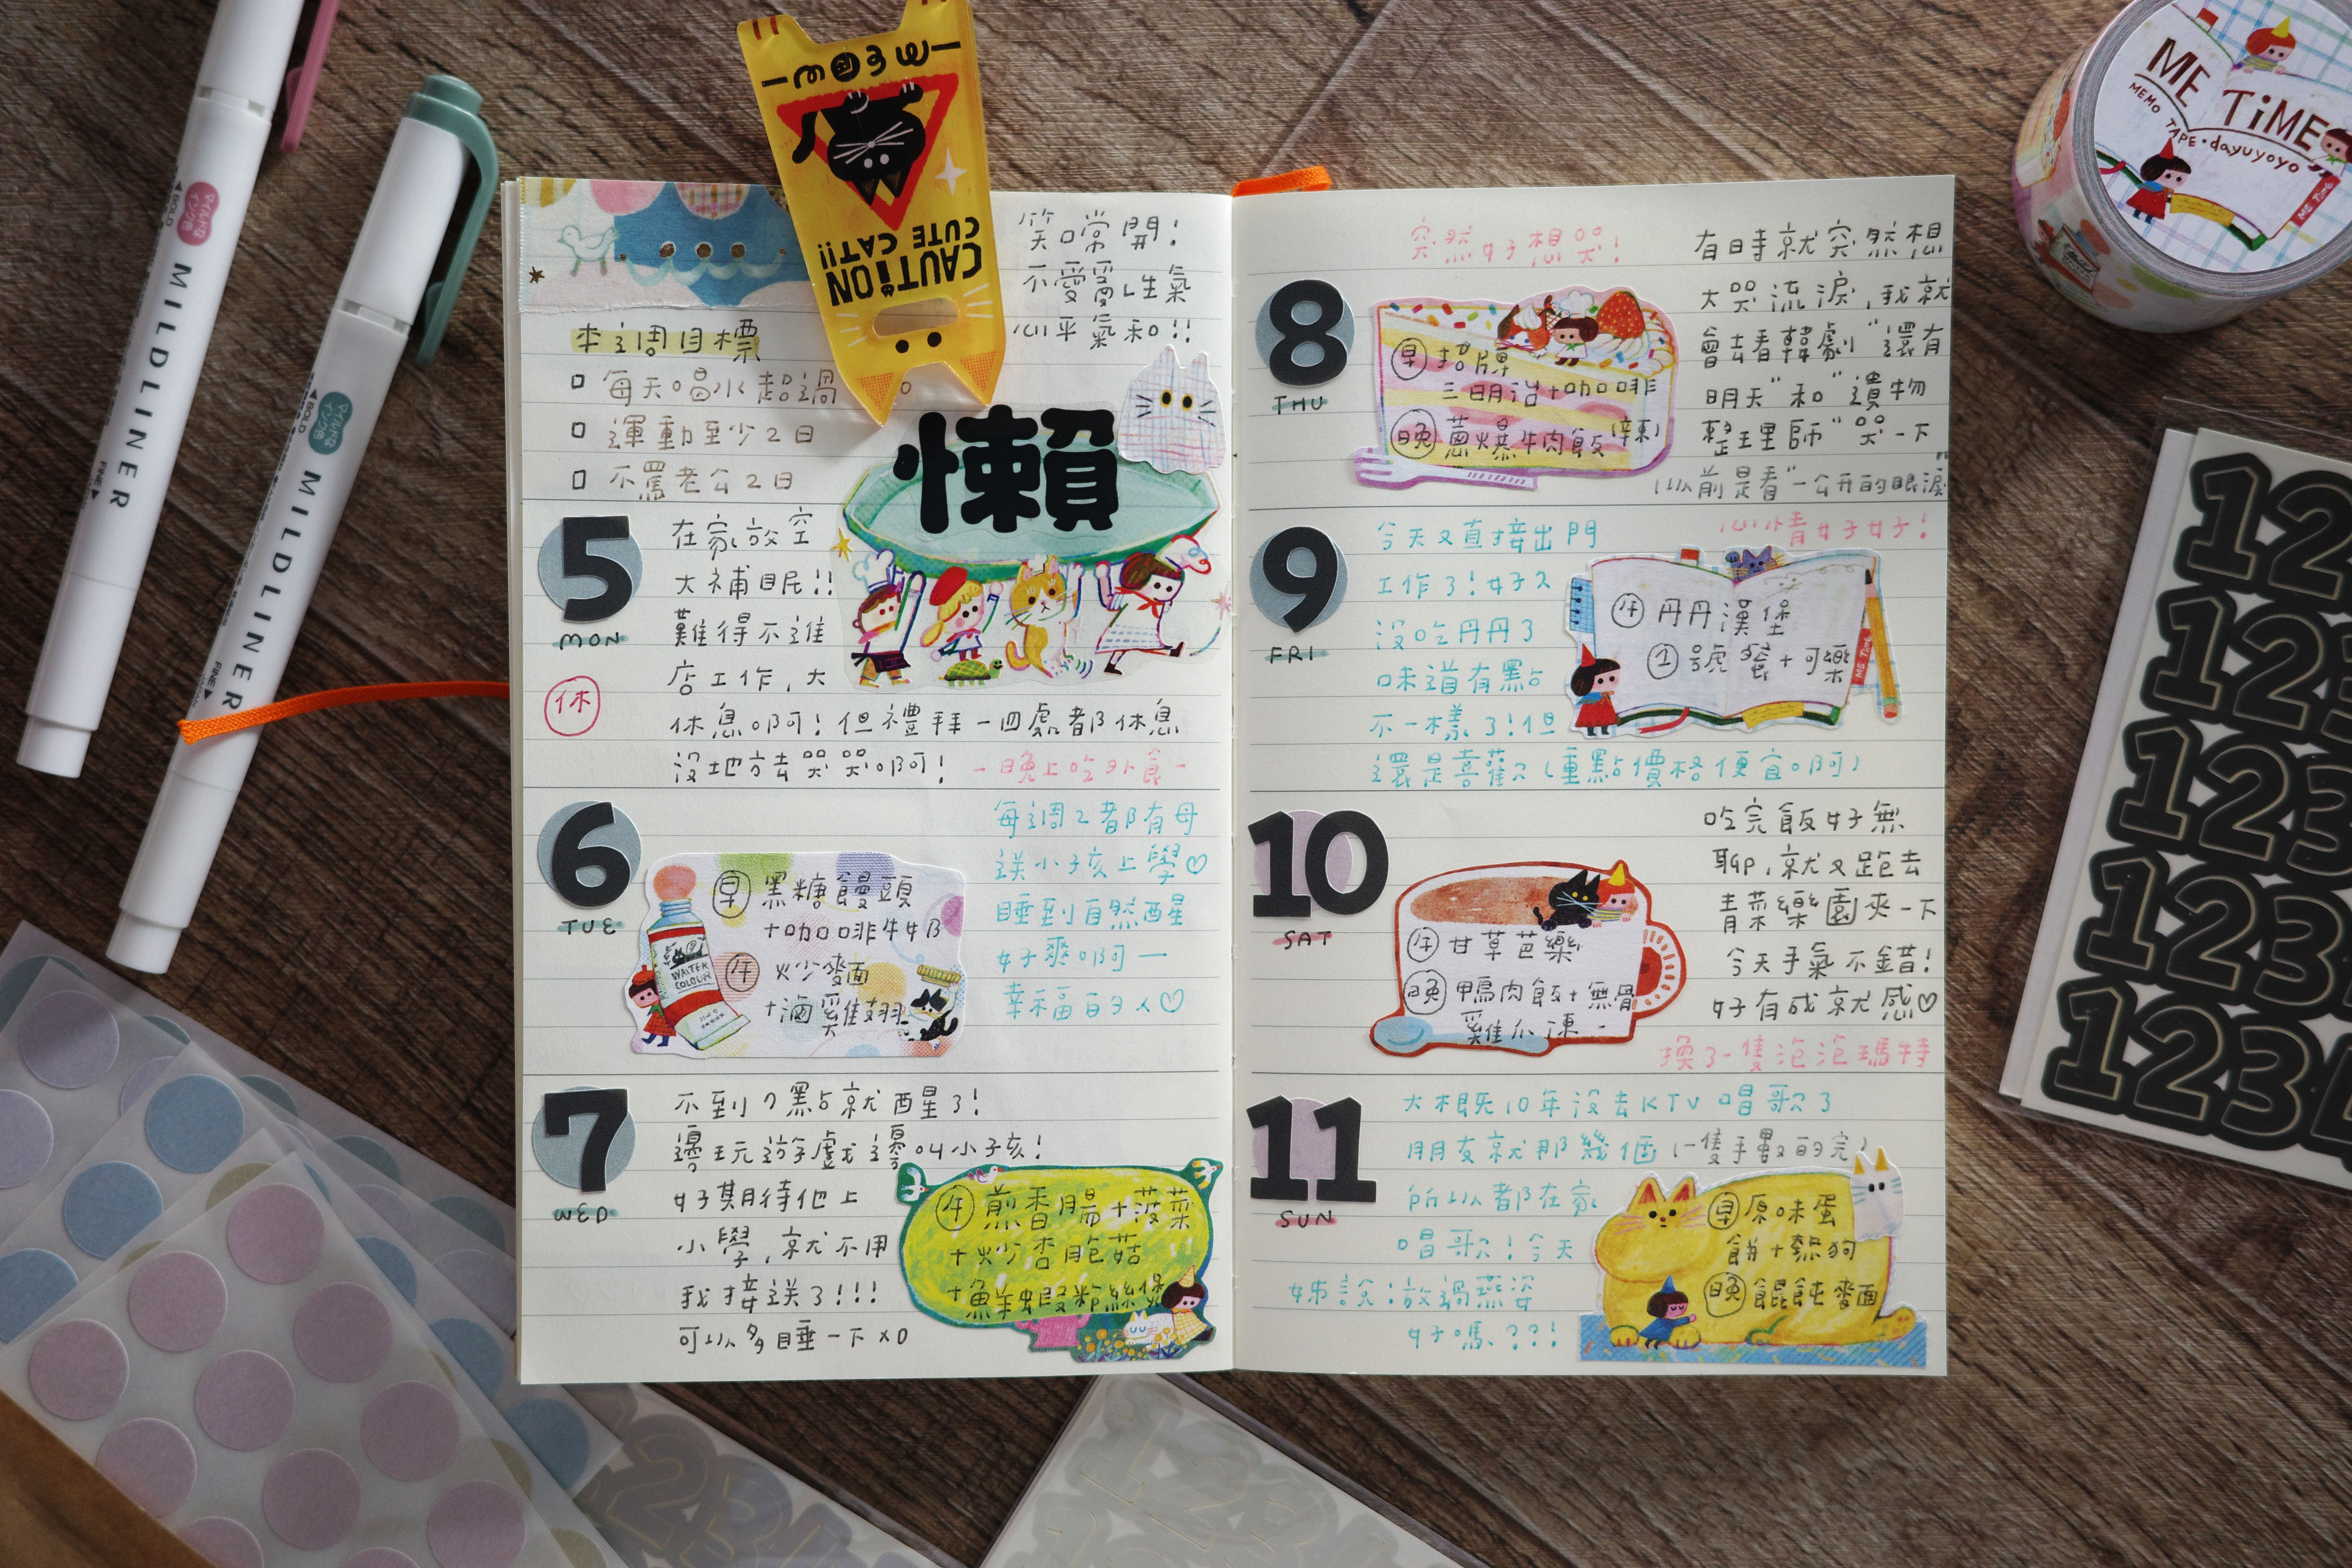 MILDLINER
BOLD
マイルドな
インク色
FINE
MILDLINER
BOLD
マイルドな
インク色
FINE
meow
CAUTiON
CUTE CAT!!
ME TiME
MEMO TAPE・dayuyoyo
ME Time
笑口常開!
不要愛生氣
心平氣和!!
本週目標
每天喝水超過
運動至少2日
不罵老公2日
懶
5
MON
休
在家放空
大補眠!!
難得不進
店工作,大
休息啊!但禮拜一四處都休息
沒地方去哭哭啊!
-晚上吃外食-
6
TUE
早 黑糖饅頭
+咖啡牛奶
午 炒麵
+滷雞翅
WATER
COLOUR
每週2都有母
送小孩上學♡
睡到自然醒
好爽啊一
幸福的3人♡
7
WED
不到7點就醒了!
邊玩遊戲邊叫小孩!
好期待他上
小學,就不用
我接送了!!!
可以多睡一下XD
午 煎香腸+菠菜
+炒杏鮑菇
+鮮蝦粉絲煲
8
THU
突然好想哭!
早 招牌
三明治+咖啡
晚 蔥爆牛肉飯(辣)
有時就突然想
大哭流淚,我就
會去看韓劇"還有
明天"和"遺物
整理師"哭一下
(以前是看"一公升的眼淚"
9
FRI
今天又直接出門
心情好好!
工作了!好久
沒吃丹丹了
味道有點
不一樣了!但
還是喜歡(重點價格便宜啊)
午 丹丹漢堡
①號餐+可樂
ME Time
10
SAT
午 甘草芭樂
晚 鴨肉飯+無骨
雞爪凍
吃完飯好無
聊,就又跑去
青菜樂園夾一下
今天手氣不錯!
好有成就感♡
換了一隻泡泡瑪特
11
SUN
大概10年沒去KTV唱歌了
朋友就那幾個(一隻手數的完)
所以都在家
唱歌!今天
姊說:放過燕姿
好嗎??!
早 原味蛋
餅+熱狗
晚 餛飩麵
12
123
123
123
123